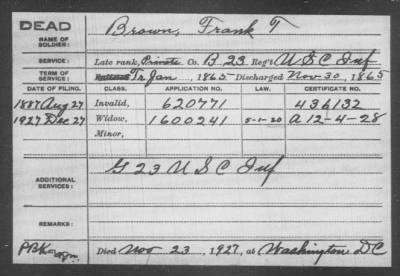 DEAD
NAME OF SOLDIER: Brown, Frank T
SERVICE: Late rank, Private Co. B. 23, Reg't U S C Inf
TERM OF SERVICE: Tr Jan , 1865 Discharged Nov. 30, 1865
DATE OF FILING. CLASS. APPLICATION NO. LAW. CERTIFICATE NO.
1887 Aug 27 Invalid, 620771 436132
1927 Dec 27 Widow, 1600241 5-1-20 A 12-4-28
Minor,
ADDITIONAL SERVICES: G 23 U S C Inf
REMARKS:
PBK
Died Nov 23, 1927, at Washington DC